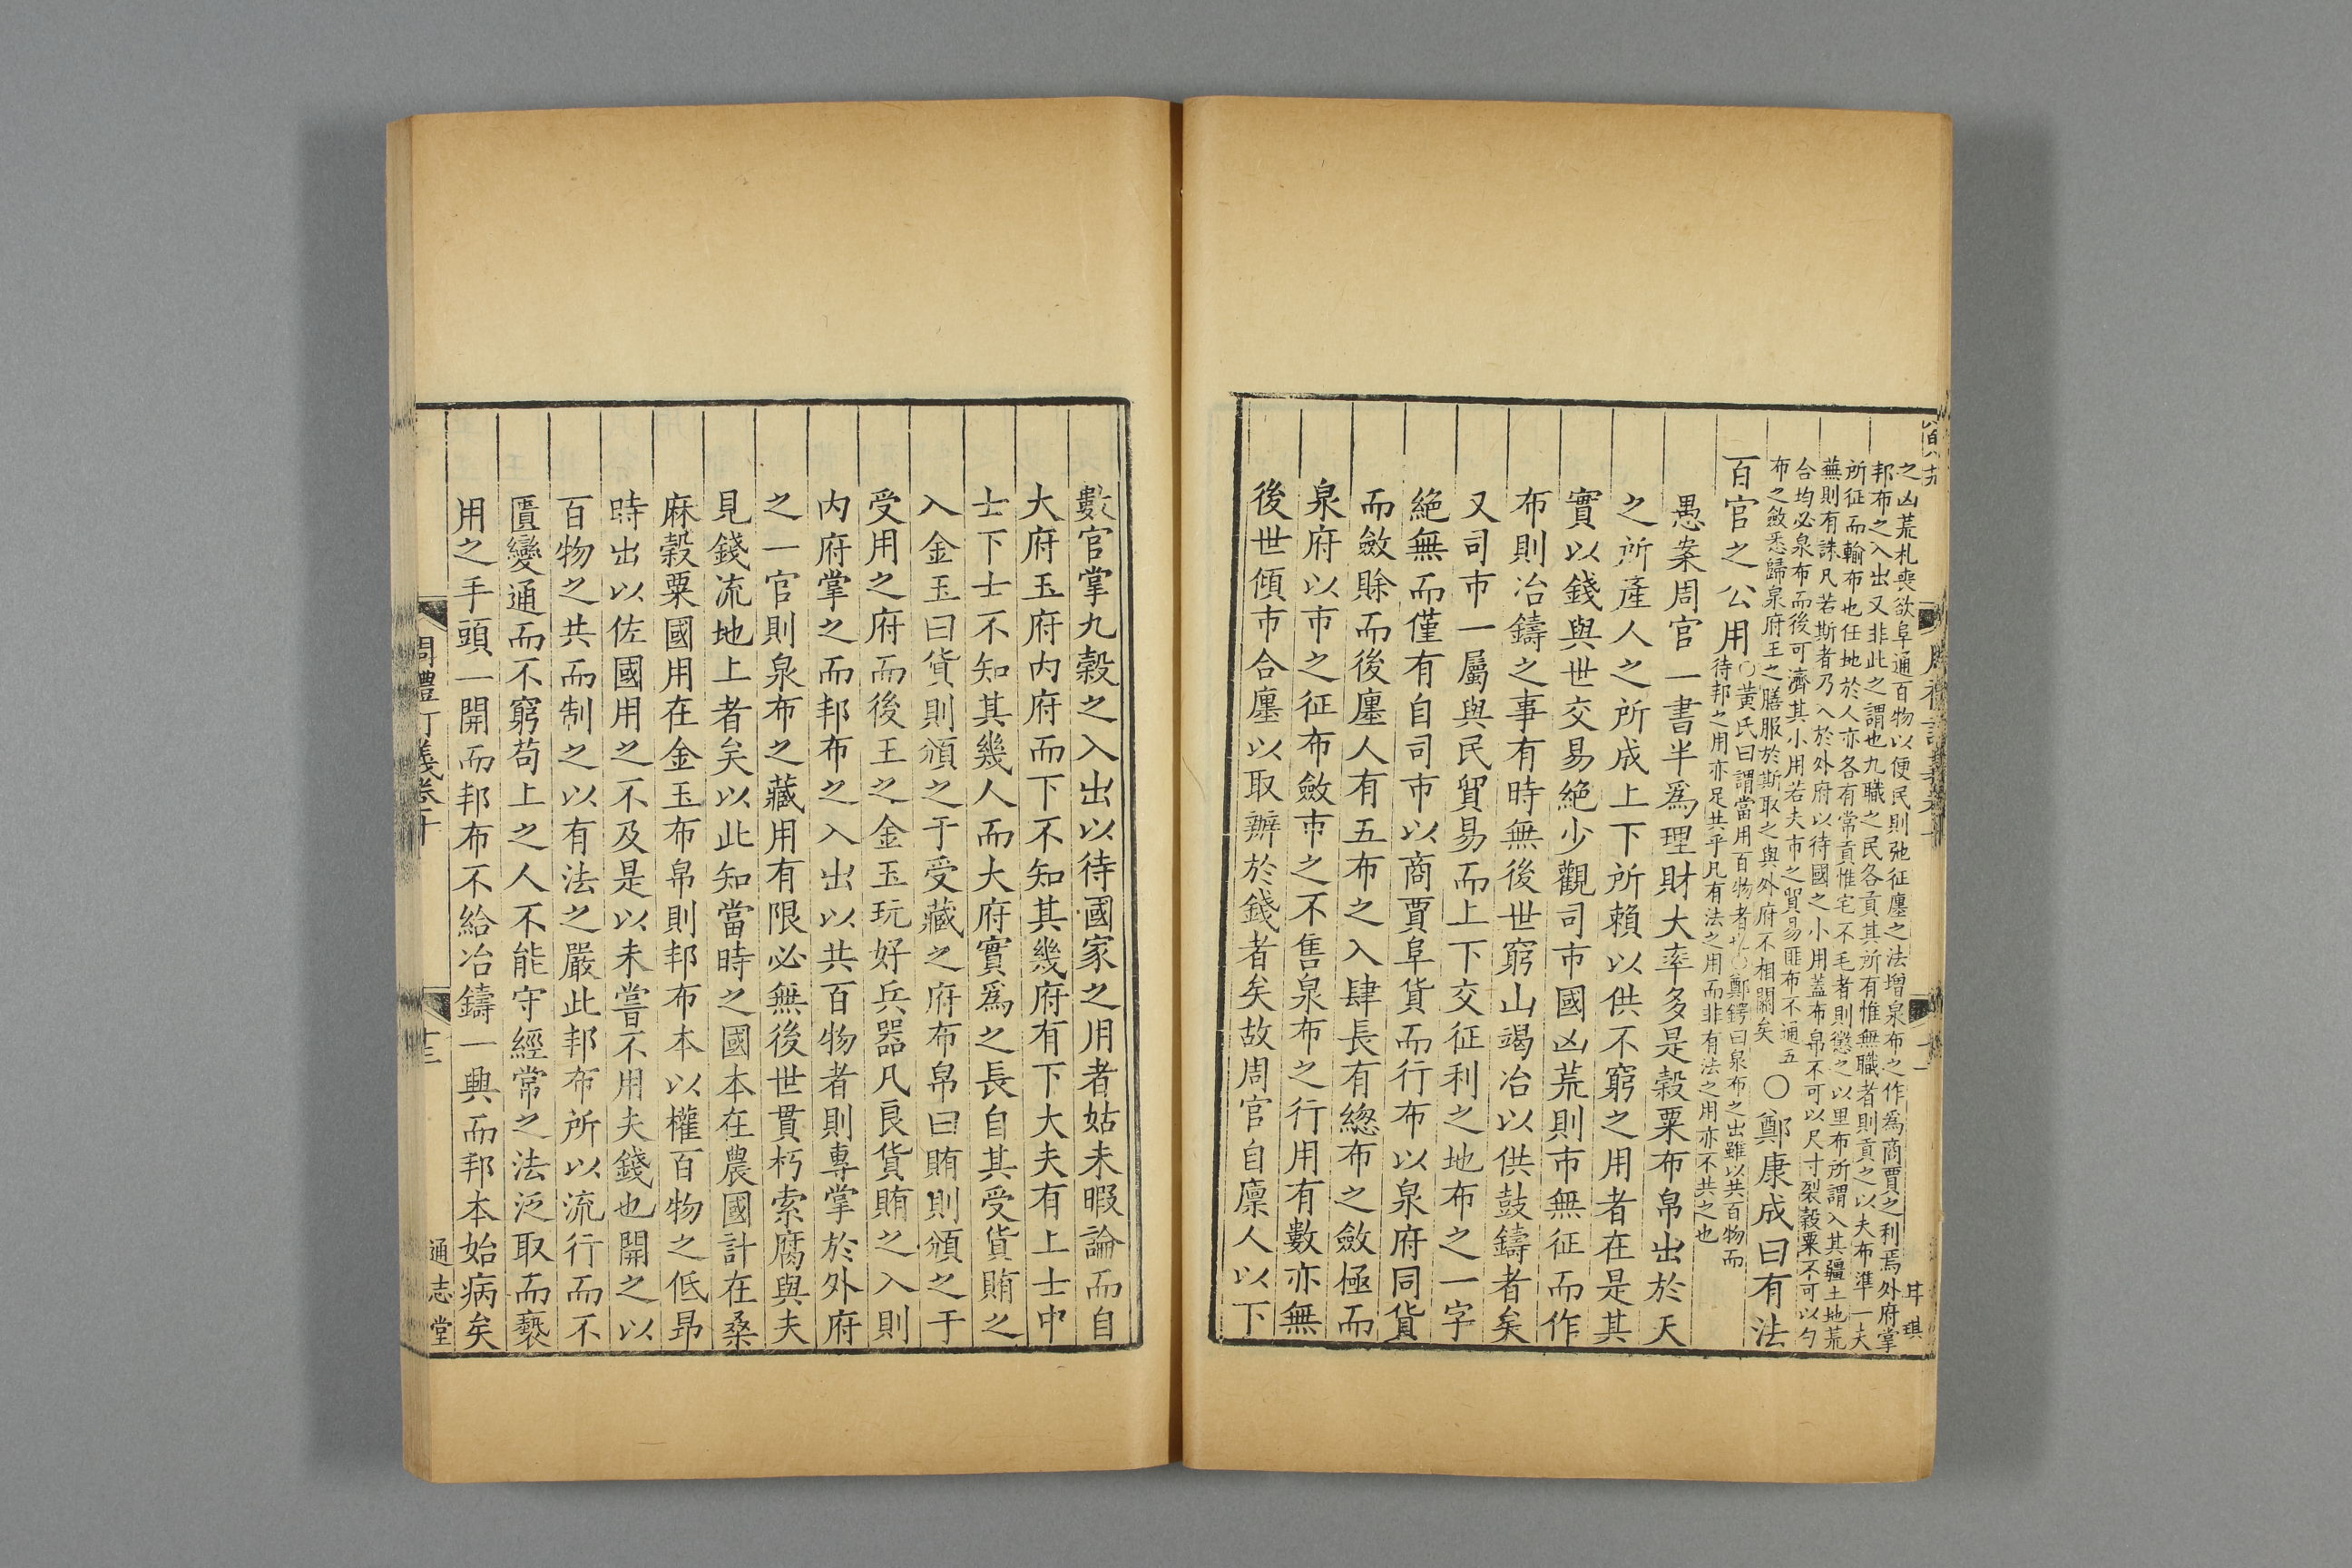 之凶荒札喪欲阜通百物以便民則弛征廛之法增泉布之作為商賈之利焉外府掌
邦布之入出又非此之謂也九職之民各貢其所有惟無職者則貢之以夫布準一夫
所征而輸布也任地於人亦各有常貢惟宅不毛者則懲之以里布所謂入其疆土地荒
蕪則有誅凡若斯者乃入於外府以待國之小用蓋布帛不可以尺寸裂榖粟不可以勺
合均必泉布而後可濟其小用若夫市之貿易匪布不通五
布之斂悉歸泉府王之膳服於斯取之與外府不相關矣
○鄭康成曰有法
百官之公用
○黄氏曰謂當用百物者也○鄭鍔曰泉布之出雖以共百物而
待邦之用亦足共乎凡有法之用而非有法之用亦不共之也
愚案周官一書半爲理財大率多是榖粟布帛出於天
之所產人之所成上下所賴以供不窮之用者在是其
實以錢與世交易絶少觀司市國凶荒則市無征而作
布則冶鑄之事有時無後世窮山竭冶以供鼓鑄者矣
又司市一屬與民貿易而上下交征利之地布之一字
絶無而僅有自司市以商賈阜貨而行布以泉府同貨
而斂賒而後廛人有五布之入肆長有緫布之斂極而
泉府以市之征布斂市之不售泉布之行用有數亦無
後世傾市合廛以取辦於錢者矣故周官自廪人以下
耳琪
數官掌九榖之入出以待國家之用者姑未暇論而自
大府玉府内府而下不知其幾府有下大夫有上士中
士下士不知其幾人而大府實爲之長自其受貨賄之
入金玉曰貨則頒之于受藏之府布帛曰賄則頒之于
受用之府而後王之金玉玩好兵器凡良貨賄之入則
内府掌之而邦布之入出以共百物者則專掌於外府
之一官則泉布之藏用有限必無後世貫朽索腐與夫
見錢流地上者矣以此知當時之國本在農國計在桑
麻榖粟國用在金玉布帛則邦布本以權百物之低昻
時出以佐國用之不及是以未嘗不用夫錢也開之以
百物之共而制之以有法之嚴此邦布所以流行而不
匱變通而不窮苟上之人不能守經常之法泛取而褻
用之手頭一開而邦布不給冶鑄一興而邦本始病矣
周禮訂義卷十
十三
通志堂